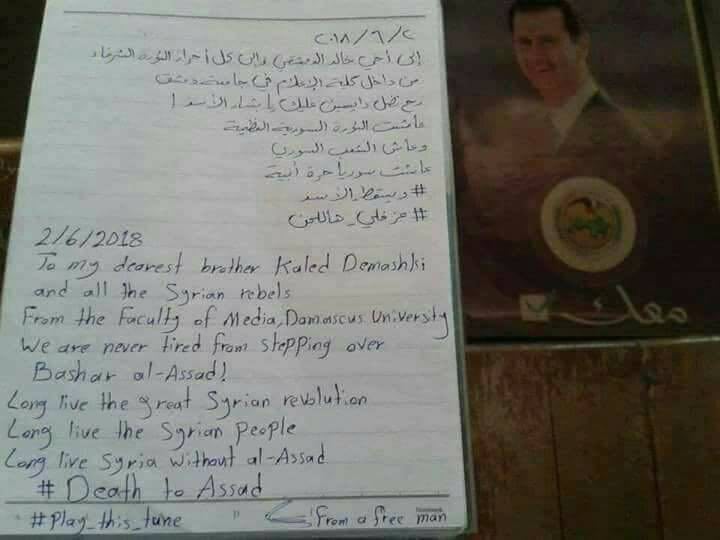 ٢٠١٨/٦/٢
إلى أخي خالد الدمشقي وإلى كل أحرار الثورة الشرفاء
من داخل كلية الإعلام في جامعة دمشق
رح نضل دايسين عليك يا بشار الأسد!
عاشت الثورة السورية العظيمة
وعاش الشعب السوري
عاشت سوريا حرة أبية
#ويسقط_الأسد
#عزفلي_هاللحن
2/6/2018
To my dearest brother Kaled Demashki
and all the Syrian rebels
From the Faculty of Media, Damascus University
We are never tired from stepping over
Bashar al-Assad!
Long live the great Syrian revolution
Long live the Syrian People
Long live Syria without al-Assad
# Death to Assad
#Play_this_tune
From a free man
معك